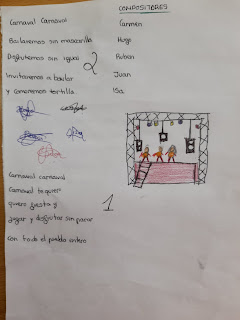 Carnaval Carnaval
Bailaremos sin mascarilla
Disfrutemos sin igual
Invitaremos a bailar
y comeremos tortilla
2
Carnaval carnaval
Carnaval te quiero
quiero fiesta y
jugar y disfrutar sin parar
con todo el pueblo entero
1
COMPOSITORES
Carmen
Hugo
Ruben
Juan
Isa.